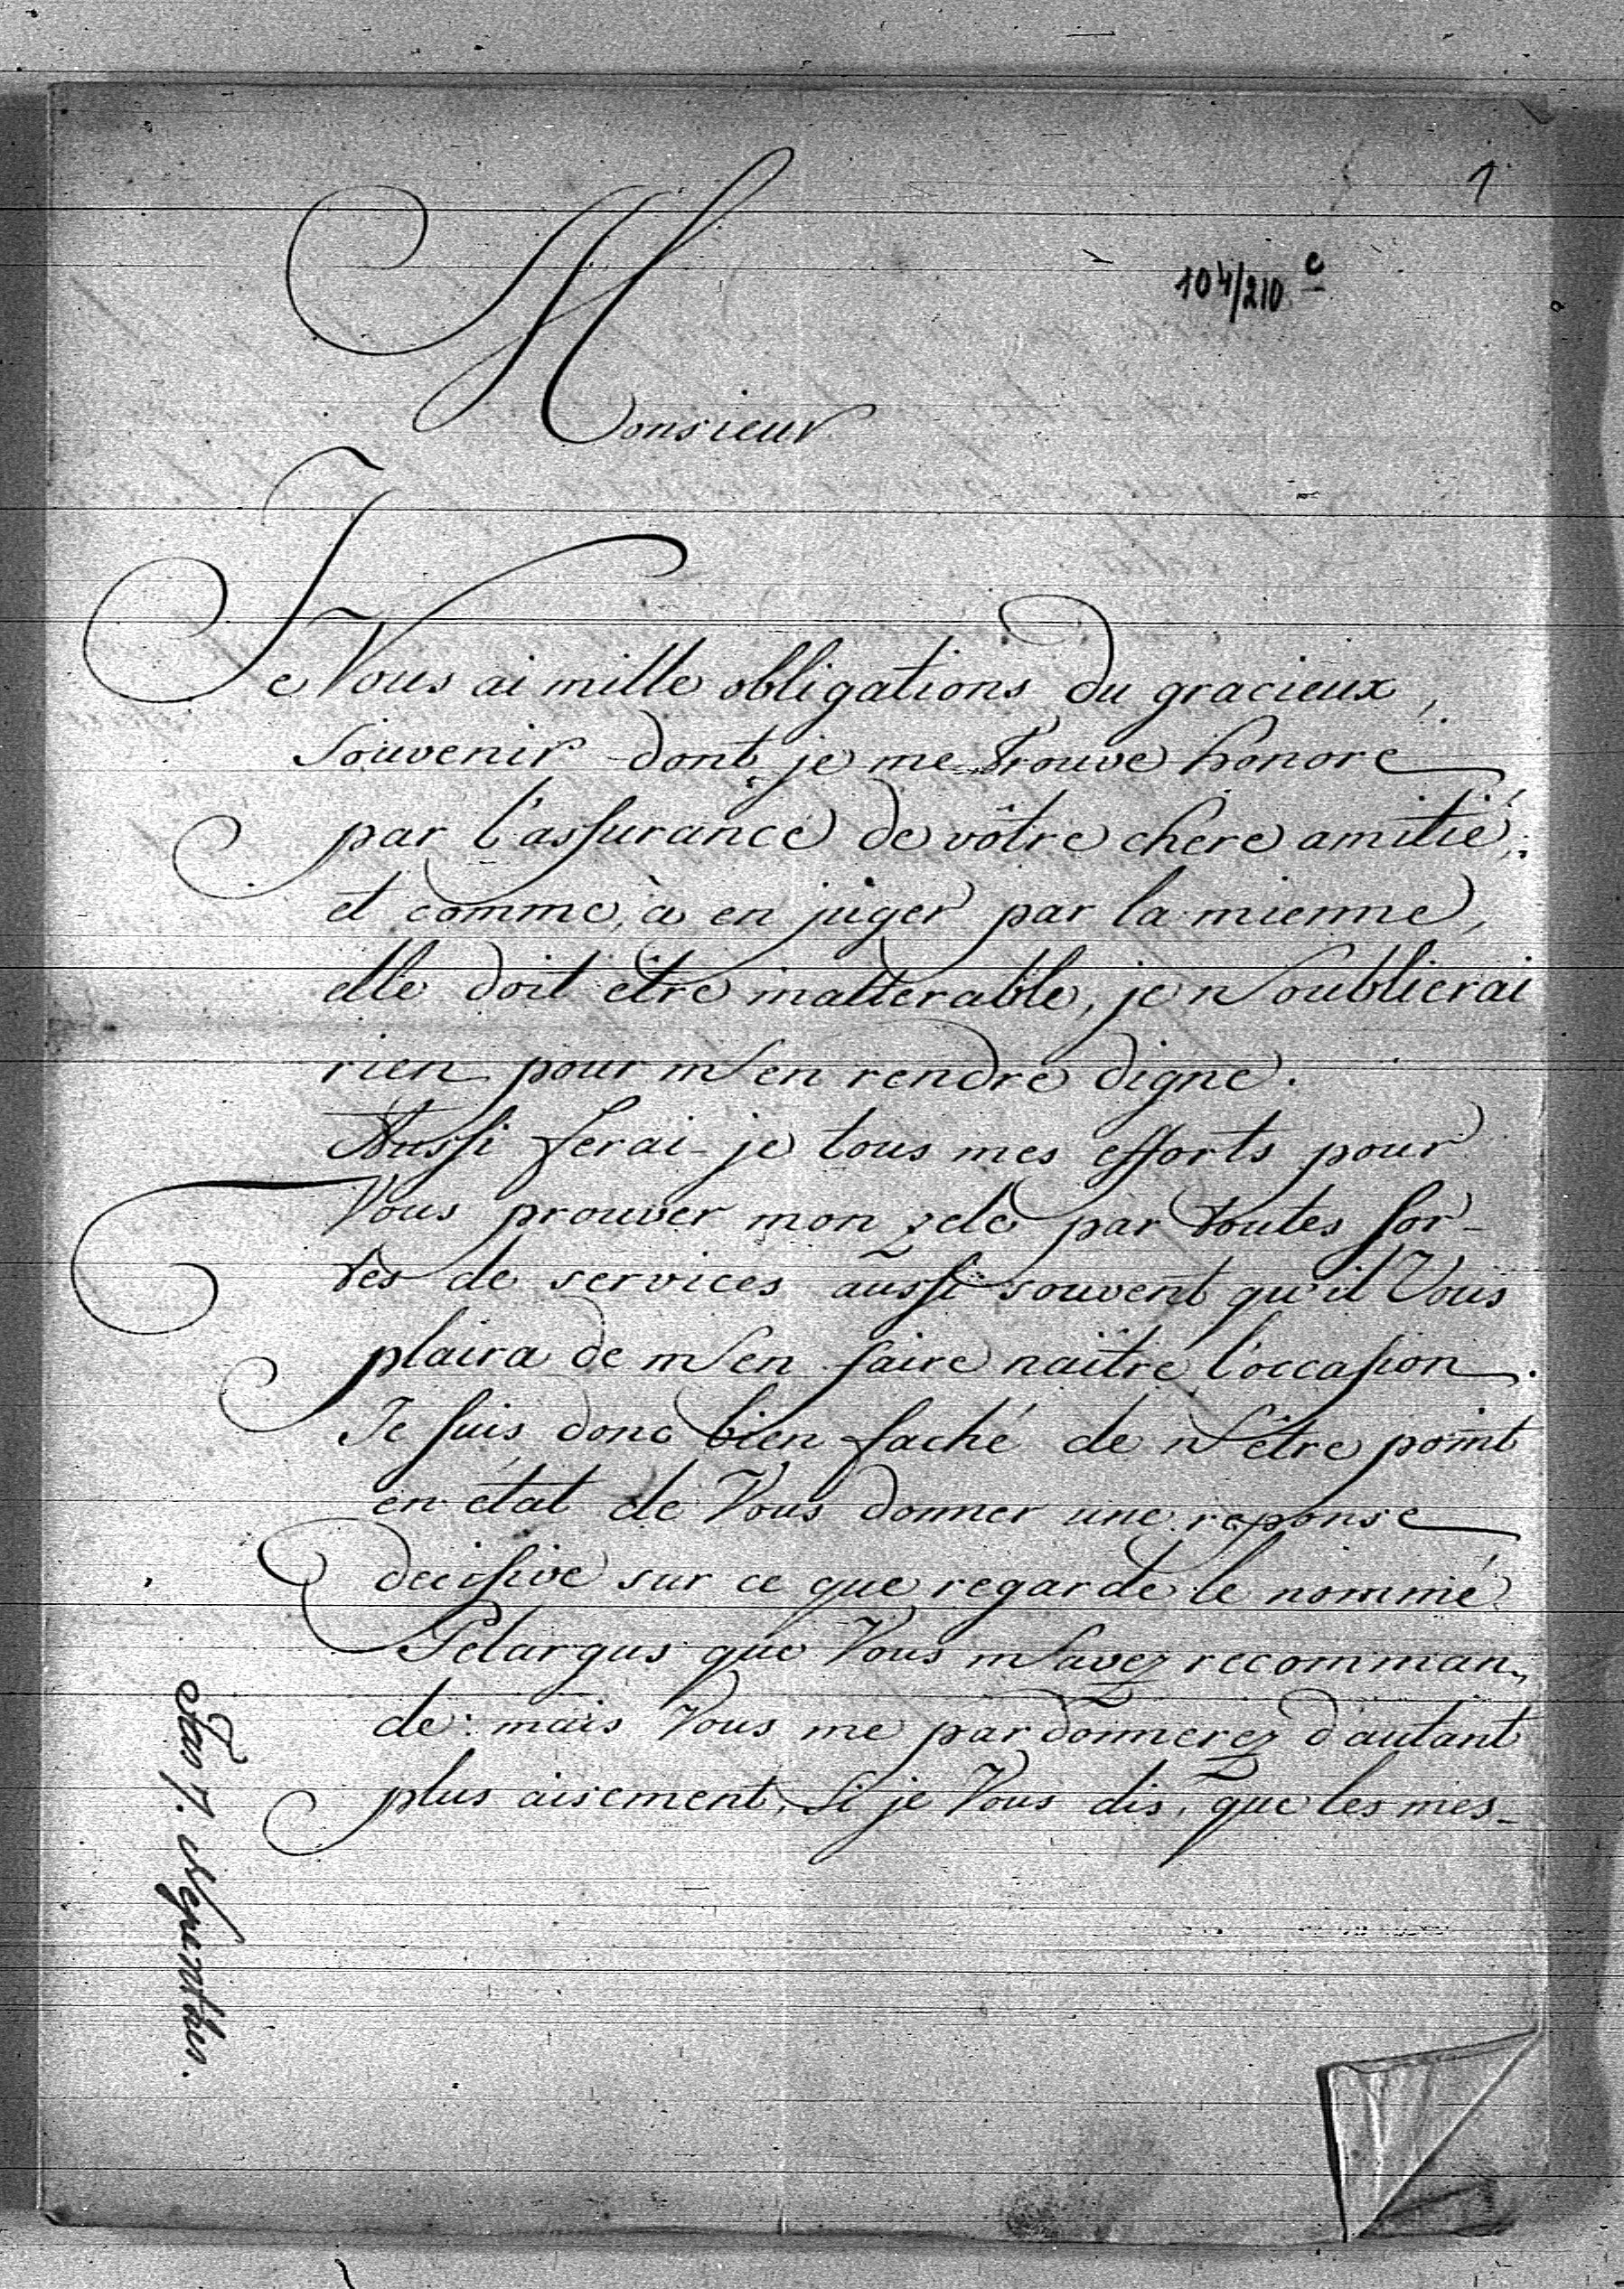 1
104/210 c
Monsieur
Je Vous ai mille obligations du gracieux,
souvenir dont je me trouve honore
par l'assurance de vôtre chere amitié,
et comme, à en juger par la mienne,
elle doit être inalterable, je n'oublierai
rien pour m'en rendre digne.
Aussi ferai-je tous mes efforts pour
Vous prouver mon zele par toutes sor-
tes de services aussi souvent qu'il Vous
plaira de m'en faire naître l'occasion.
Je suis donc bien faché de n'être point
en état de Vous donner une reponse
decisive sur ce que regarde le nommé
Pelargus que Vous m'avez recomman-
de: mais Vous me pardonnerez d'autant
plus aisement, si je Vous dis, que les mes-